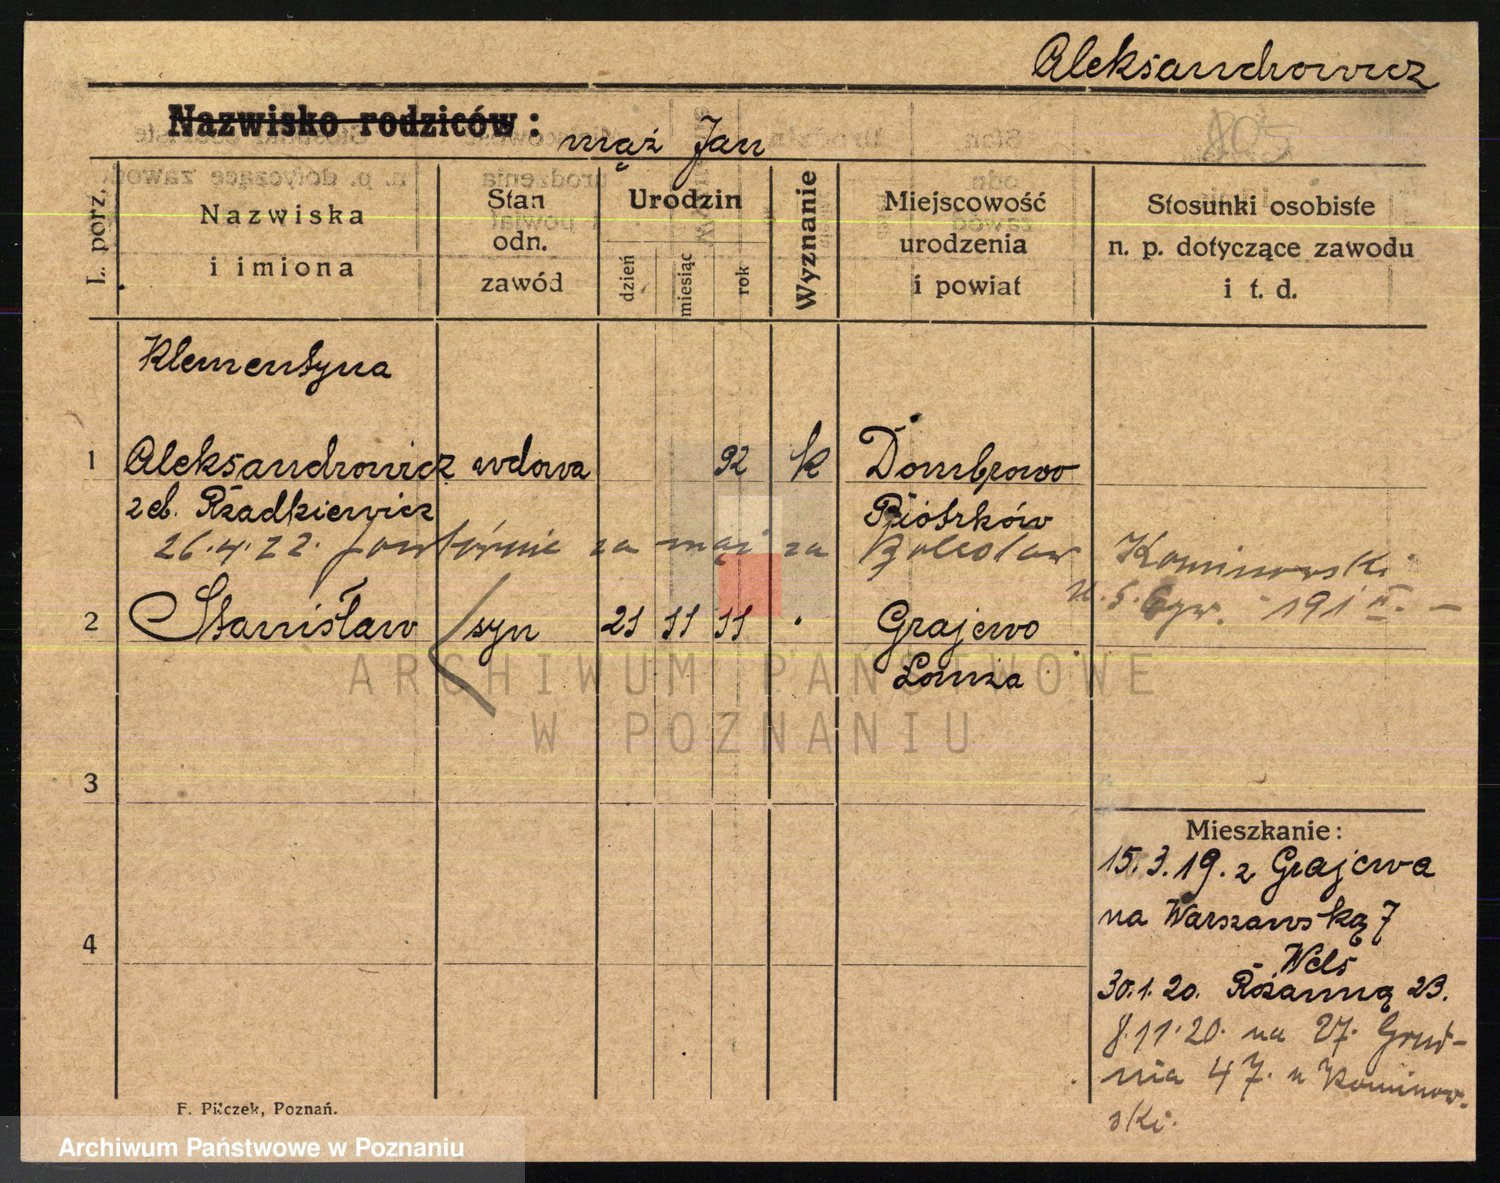 Aleksandrowicz
Nazwisko rodziców:
mąż Jan
L. porz.
Nazwiska
i imiona
Stan
odn.
zawód
Urodzin
dzień
miesiąc
rok
Wyznanie
Miejscowość
urodzenia
i powiat
Stosunki osobiste
n. p. dotyczące zawodu
i t. d.
Klementyna
1 Aleksandrowicz wdowa 92 k Dombrowo
zeb. Rżadkiewicz Piotrków
26.4.22. powtórnie za mąż za Bolesław Kominowski
191 II. –
2 Stanisław syn 21 11 11 . Grajewo
Łomża
3
4
Mieszkanie:
15.3.19. z Grajewa
na Warszawską 7
Wels
30.1.20. Różanną 23.
8.11.20. na 27. Grud-
nia 47. u Kominow-
ski.
F. Pilczek, Poznań.
ARCHIWUM PAŃSTWOWE
W POZNANIU
Archiwum Państwowe w Poznaniu